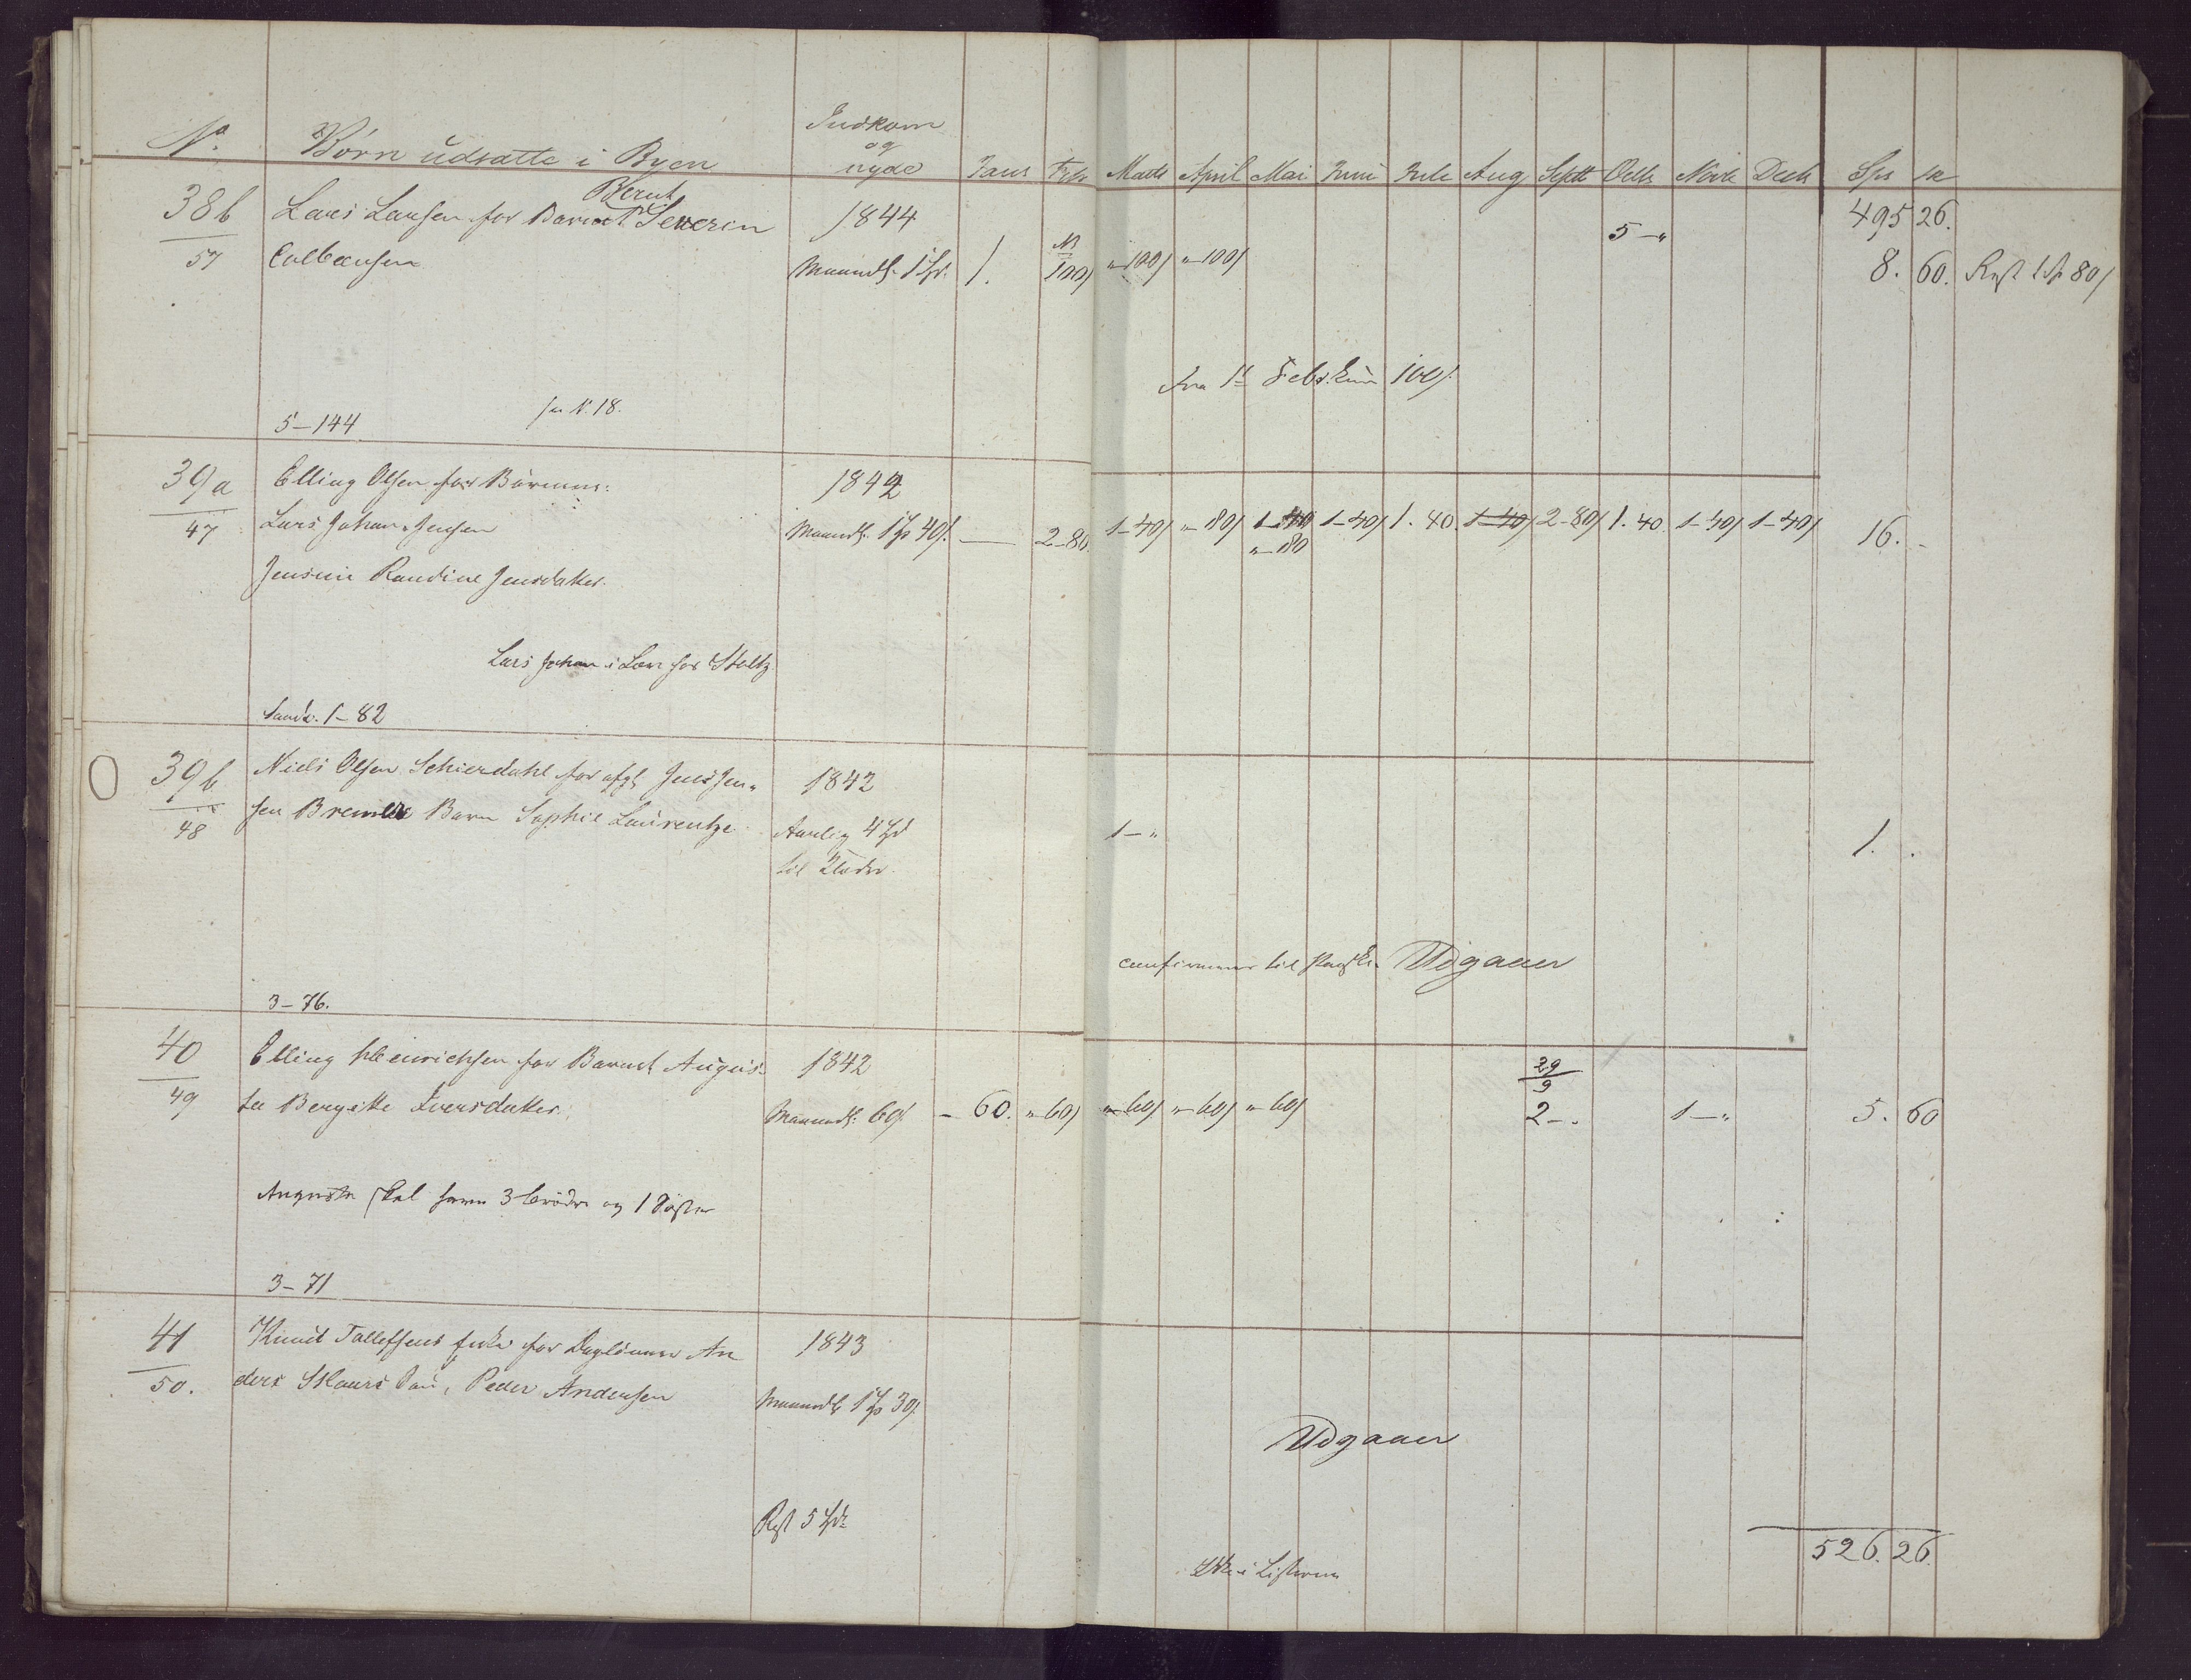 No. Børn udsatte i Byen Indkom og nyde Janr Febr Marts April Mai Juni Juli Aug Septb Octb Novb Decb Spd sk
495 26.
38b Lars Larsen for Barnet Bernt Severin 1844 5 – "
57 Colbensen Maanedl. 1 Spd. 1. 100 s "–100 s "–100 s 8. 60. Rest 1 Sp 80 s
fra 1t Febr. kun 100 s
5–144 se N. 18.
39a Elling Olsen for Børnene: 1842
47 Lars Johan Jensen Maanedl. 1 Sp 40 s. — 2–80. 1–40 s "–80 s 1–40 1–40 s 1. 40. 1–40 s 2–80 s 1. 40. 1–40 s 1–40 s 16. –
"–80
Jensine Randine Jensdatter.
Lars Johan i Lære hos Stoltz
Sandv. 1–82
39b Niels Olsen Schierdahl for afg. Jens Jen- 1842
48 sen Bremers Barn Sophie Laurentze Aarlig 4 Spd 1–" 1. .
til Klæder.
confirmeres til Paaske. Udgaaer
3–76.
40 Elling Henrichsen for Barnet Augus- 1842 29/9
49 ta Bergitte Iversdatter. Maanedl. 60 s. – 60. "–60 s "–60 s "–60 s "–60 s 2–. 1–" 5. 60
Augusta skal have 3 Brødre og 1 Søster
3–71
41 Knud Tollefsens Enke for Daglønner An 1843
50. ders Skaurs Søn, Peder Andersen Maanedl 1 Sp 30 s.
Udgaaer
Rest 5 Spd
Ikke i Listerne
526. 26.